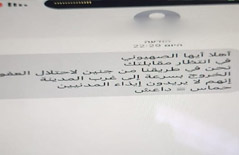 22:29
أهلا أيها الصهيوني
في انتظار مقابلتك
نحن في طريقنا من جنين لاحتلال العفو
الخروج بسرعة إلى غرب المدينة
إنهم لا يريدون إيذاء المدنيين
حماس = داعش